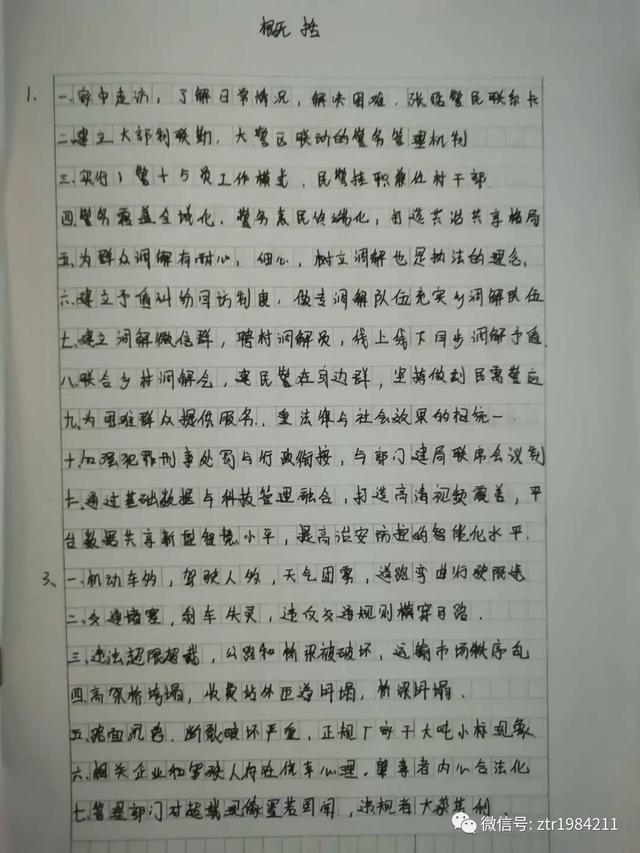 概括
1. 一、家中走访，了解日常情况，解决困难，张贴警民联系卡
二、建立大部制联勤，大警区联动的警务管理机制
三、实行1警十5员工作模式，民警挂职兼任村干部
四、警务覆盖全域化，警务亲民终端化，打造共治共享格局
五、为群众调解有耐心，细心，树立调解也是执法的理念。
六、建立矛盾纠纷回访制度，做专调解队伍充实乡调解队伍
七、建立调解微信群，聘村调解员，线上线下同步调解矛盾
八、联合乡村调解会，建民警在身边群，坚持做到民离警应
九、为困难群众提供服务，重法律与社会效果的相统一
十、加强犯罪刑事处罚与行政衔接，与部门建局联席会议制
十一、通过基础数据与科技管理融合，打造高清视频覆盖，平
台数据共享新型智慧小平，提高治安防控的智能化水平.
3、一、机动车的，驾驶人的，天气因素，道路弯曲行驶限速
二、交通堵塞，刹车失灵，违反交通规则横穿马路.
三、违法超限超载，公路和桥梁被破坏，运输市场秩序乱
四、高架桥垮塌，收费站外匝道坍塌，桥梁坍塌.
五、路面沉陷、断裂破坏严重，正规厂家于大吨小标现象
六、相关企业和驾驶人存在侥幸心理，肇事者内心合法化
七、管理部门对超载现像置若罔闻，违规者大获其利.
微信号: ztr1984211